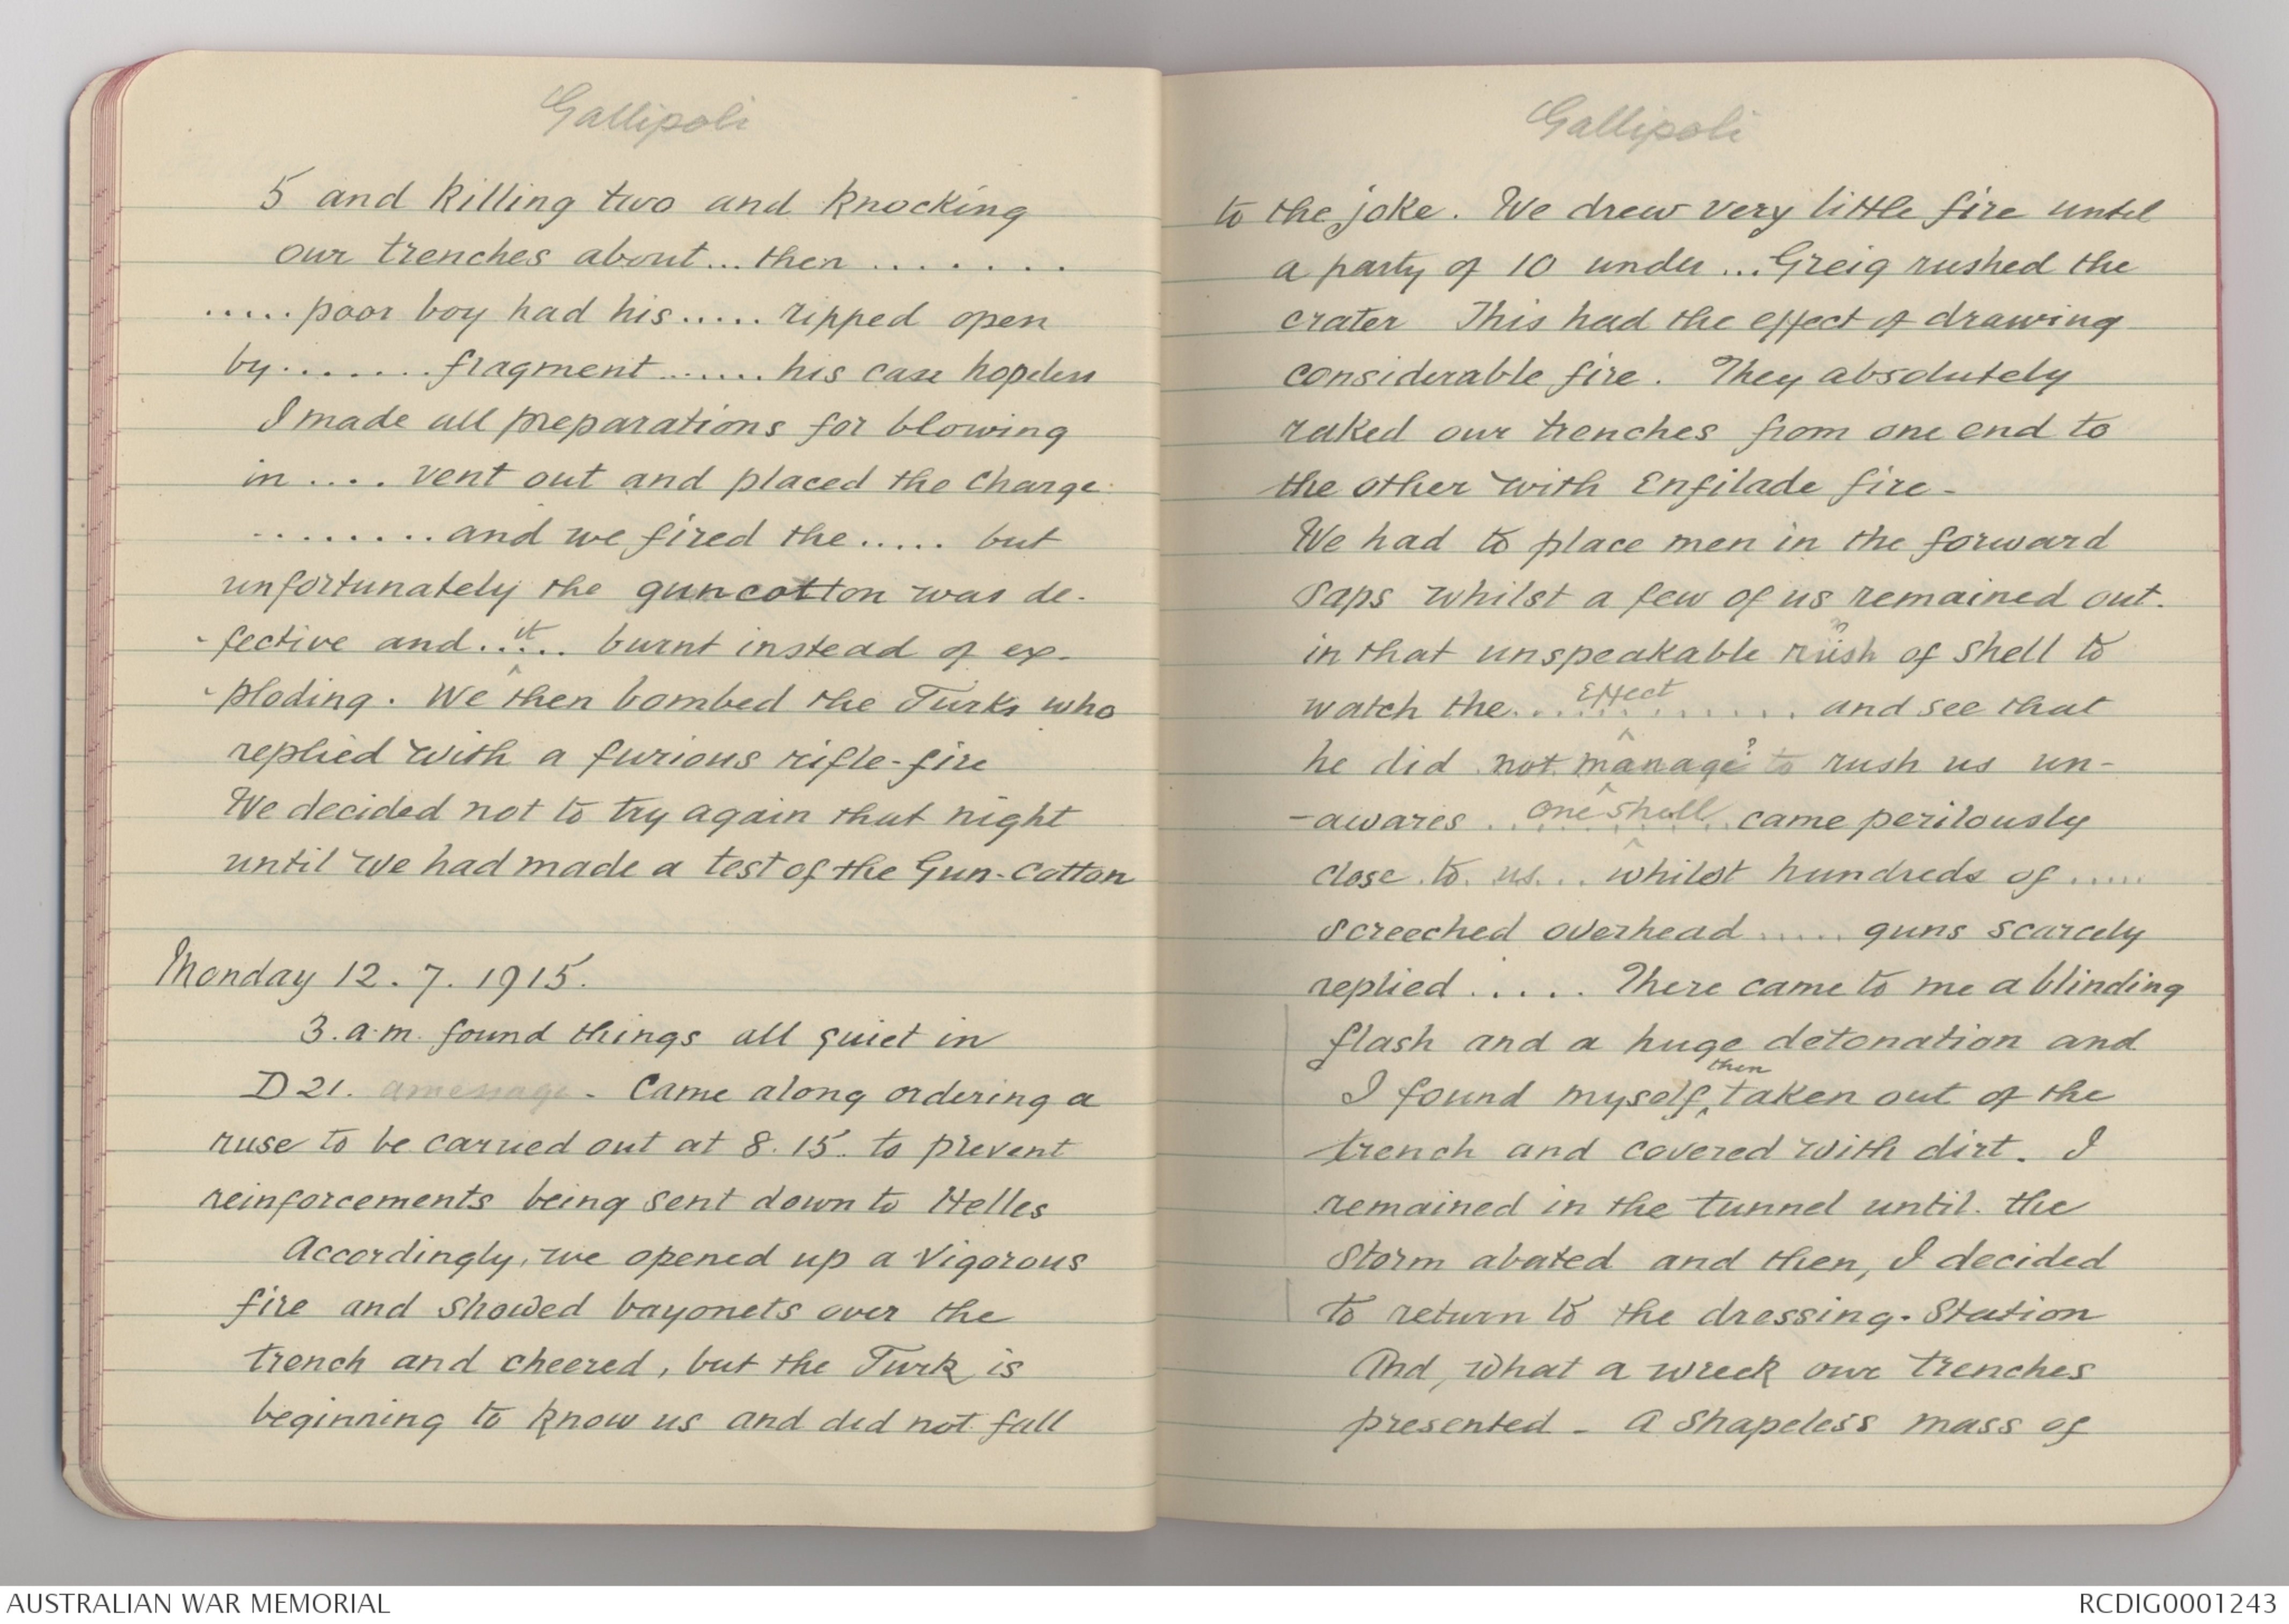 Gallipoli
5 and killing two and knocking
our trenches about... then ........
.....poor boy had his..... ripped open
by........fragment.......his case hopeless
I made all preparations for blowing
in .... vent out and placed the charge
.........and we fired the..... but
unfortunately the guncotton was de-
-fective and..it... burnt instead of ex-
-ploding. We then bombed the Turks who
replied with a furious rifle-fire
We decided not to try again that night
until we had made a test of the Gun-Cotton
Monday 12. 7. 1915.
3. a.m. found things all quiet in
D 21. a message - Came along ordering a
ruse to be carried out at 8.15. to prevent
reinforcements being sent down to Helles
Accordingly, we opened up a vigorous
fire and showed bayonets over the
trench and cheered, but the Turk is
beginning to know us and did not fall
Gallipoli
to the joke. We drew very little fire until
a party of 10 under ...Greig rushed the
crater This had the effect of drawing
considerable fire. They absolutely
raked our trenches from one end to
the other with Enfilade fire-
We had to place men in the forward
saps whilst a few of us remained out.
in that unspeakable rush ? of shell to
watch the... Effect ........ and see that
he did not manage ? to rush us un-
-awares . one shell . came perilously
close to us... whilst hundreds of .....
screeched overhead ..... guns scarcely
replied ..... There came to me a blinding
flash and a huge detonation and
I found myself, then taken out of the
trench and covered with dirt. I
remained in the tunnel until. the
storm abated and then, I decided
to return to the dressing-Station
And, what a wreck our trenches
presented - a shapeless mass of
AUSTRALIAN WAR MEMORIAL
RCDIG0001243